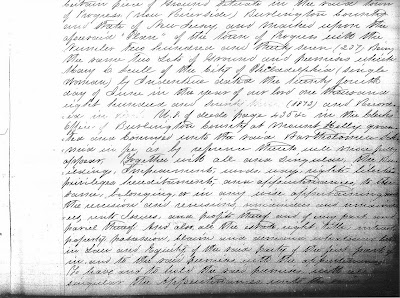 certain piece of Ground situate in the said town
of Progress (now Riverside) Burlington County
and State of New Jersey and marked upon the
aforesaid "Plan" of the town of Progress with the
Number two hundred and thirty seven (237) Being
the same two Lots of Ground and premises which
Mary C. of the City of Philadelphia (single
Woman) by Indenture dated the twenty fourth
day of June in the year of our Lord one thousand
eight hundred and (1872) and Record-
ed in of deeds page 454 in the Clerks
Office of Burlington County at Mount Holly gran-
ted and conveyed unto the said
in fee as by reference thereto will more fully
appear. Together with all and singular the Buil-
dings, Improvements, ways, rights, liberties
privileges hereditaments and appurtenances to the
same belonging or in any wise appertaining and
the reversion and reversions, remainder and remain-
ders, rents Issues and profits thereof and of any part and
parcel thereof And also, all the estate right title interest
property, possession, claim and demand whatsoever both
in Law and Equity of the said party of the first part
in and to the said premises with the appurtenances
To have and to hold the said premises, with all and
singular the Appurtenances unto the